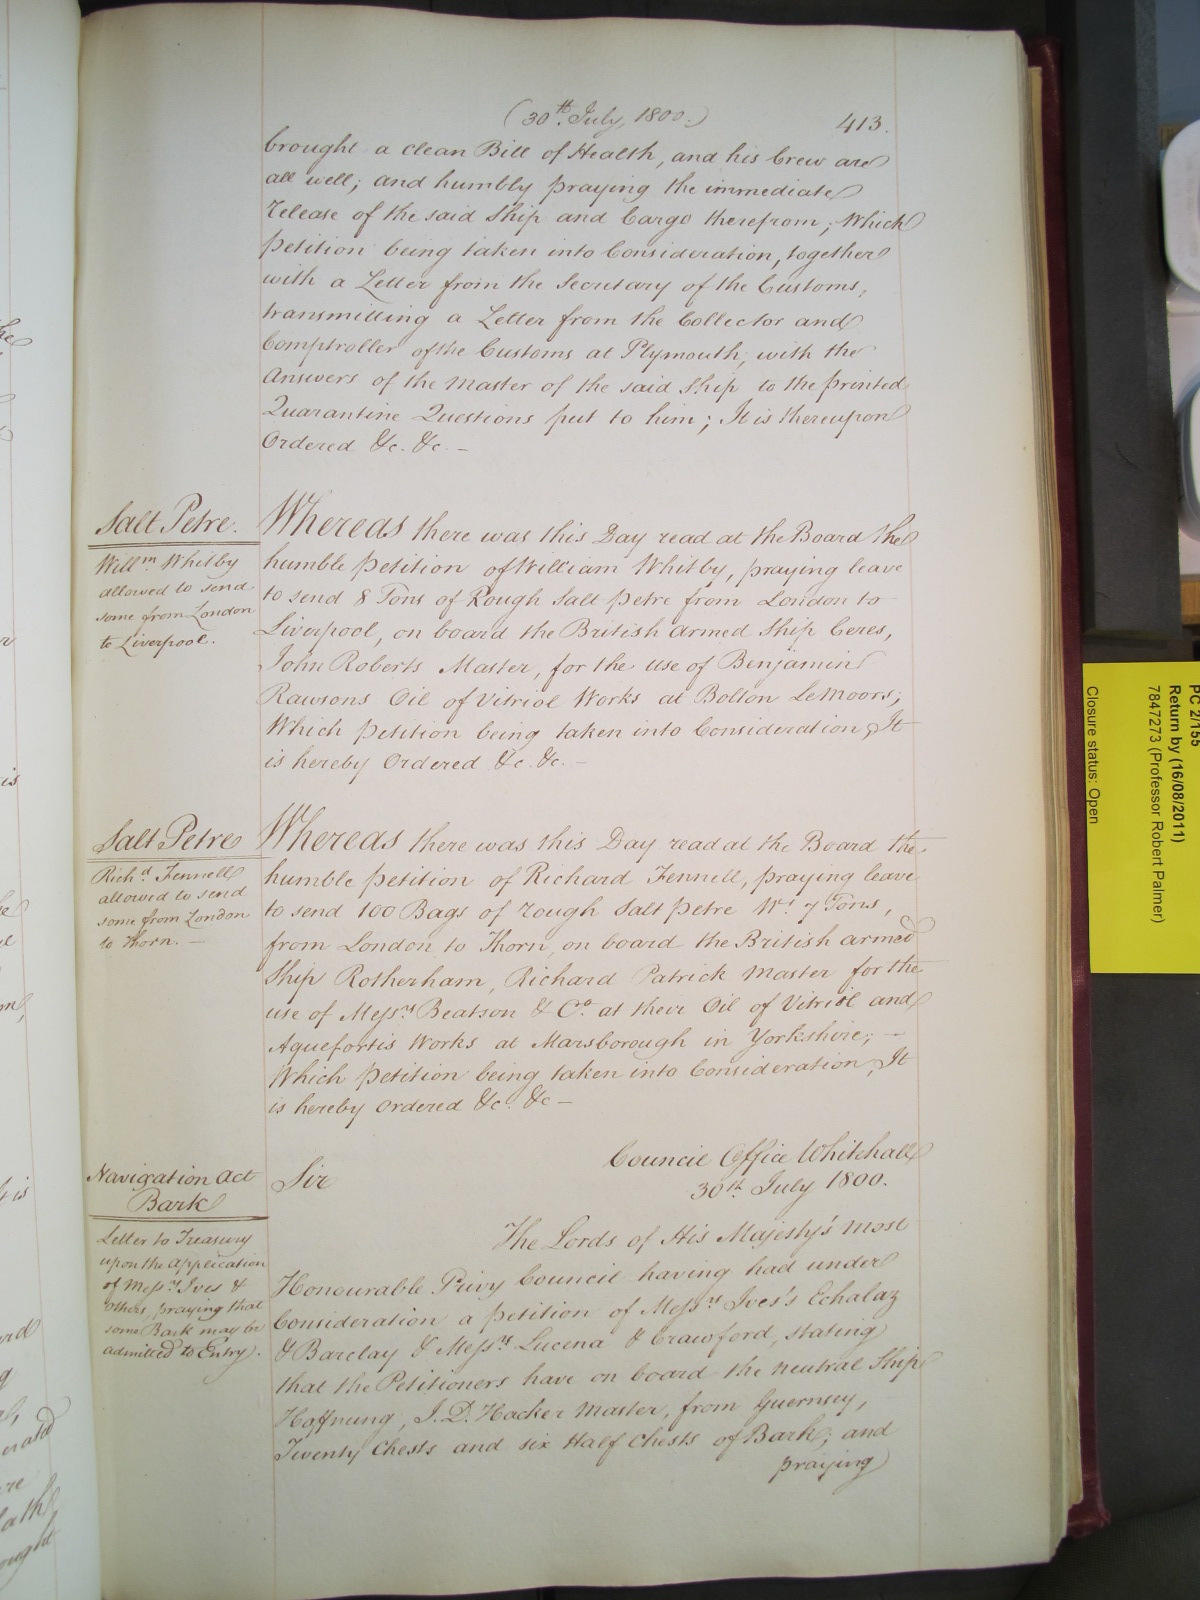 (30th July, 1800.)
413.
brought a clean Bill of Health, and his Crew are
all well; and humbly praying the immediate
release of the said Ship and Cargo therefrom; Which
petition being taken into Consideration, together
with a Letter from the Secretary of the Customs,
transmitting a Letter from the Collector and
Comptroller of the Customs at Plymouth, with the
Answers of the Master of the said Ship to the printed
Quarantine Questions put to him; It is thereupon
Ordered &c. &c. –
Salt Petre.
Willm. Whitby
allowed to send
some from London
to Liverpool.
Whereas there was this Day read at the Board the
humble petition of William Whitby, praying leave
to send 8 Tons of Rough Salt petre from London to
Liverpool, on board the British armed Ship Ceres,
John Roberts Master, for the use of Benjamin
Rawsons Oil of Vitriol Works at Bolton LeMoors;
Which petition being taken into Consideration, It
is hereby Ordered &c. &c. –
Salt Petre
Richd. Fennell
allowed to send
some from London
to Thorn. –
Whereas there was this Day read at the Board the
humble petition of Richard Fennell, praying leave
to send 100 Bags of rough Salt petre Wt. 7 Tons,
from London to Thorn, on board the British armed
Ship Rotherham, Richard Patrick Master for the
use of Messrs. Beatson & Co. at their Oil of Vitriol and
Aquefortis Works at Marsborough in Yorkshire; –
Which petition being taken into Consideration, It
is hereby Ordered &c. &c –
Navigation Act
Bark
Letter to Treasury
upon the Application
of Messrs. Ives &
others, praying that
some Bark may be
admitted to Entry.
Council Office Whitehall
30th. July 1800.
Sir
The Lords of His Majesty's most
Honourable Privy Council having had under
Consideration a petition of Messrs. Ives's Echalaz
& Barclay & Messrs. Lucena & Crawford, stating
that the Petitioners have on board the neutral Ship
Hoffnung, J. D. Hacker Master, from Guernsey,
Twenty Chests and six Half Chests of Bark; and
praying
PC 2/155
Return by (16/08/2011)
7847273 (Professor Robert Palmer)
Closure status: Open